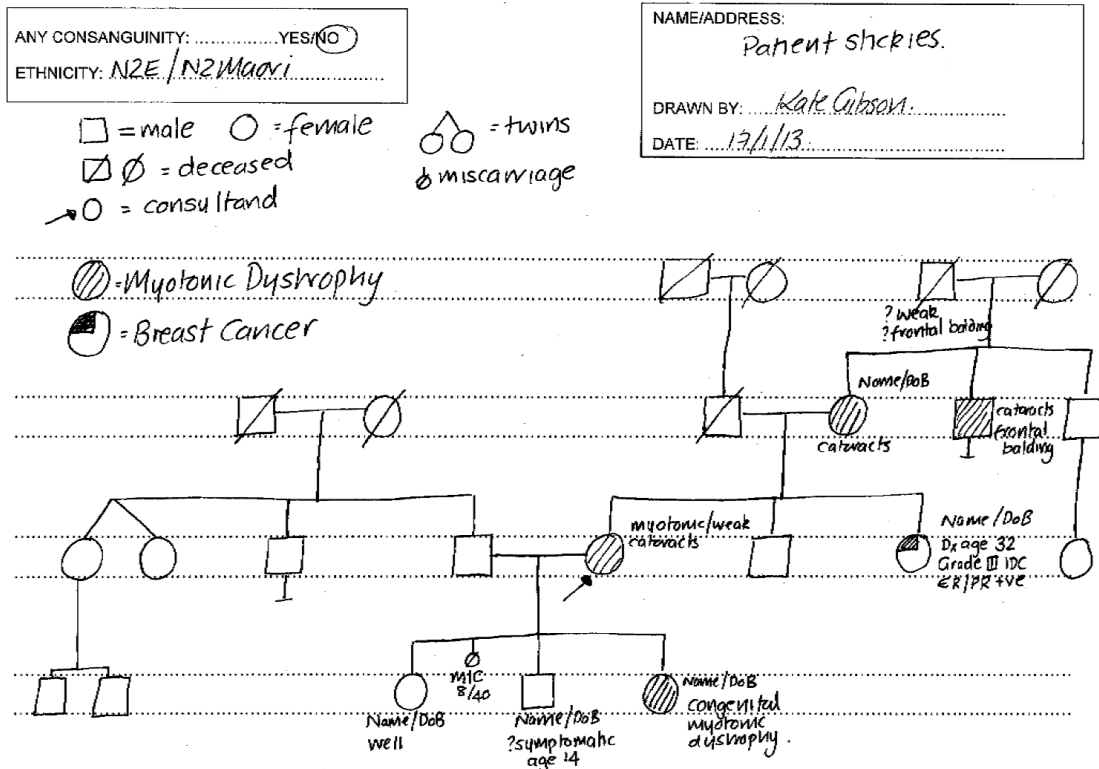 ANY CONSANGUINITY: ..............YES/NO
ETHNICITY: NZE / NZ Maori
NAME/ADDRESS:
Patient stickies.
DRAWN BY: Kate Gibson.
DATE: 17/1/13
= male
= female
= twins
= deceased
miscarriage
= consultand
= Myotonic Dystrophy
= Breast Cancer
? weak
? frontal balding
Name/DoB
cataracts
cataracts
frontal
balding
myotonic/weak
cataracts
Name/DoB
Dx age 32
Grade III IDC
ER/PR +ve
M/C
8/40
Name/DoB
well
Name/DoB
?symptomatic
age 14
Name/DoB
congenital
myotonic
dystrophy.